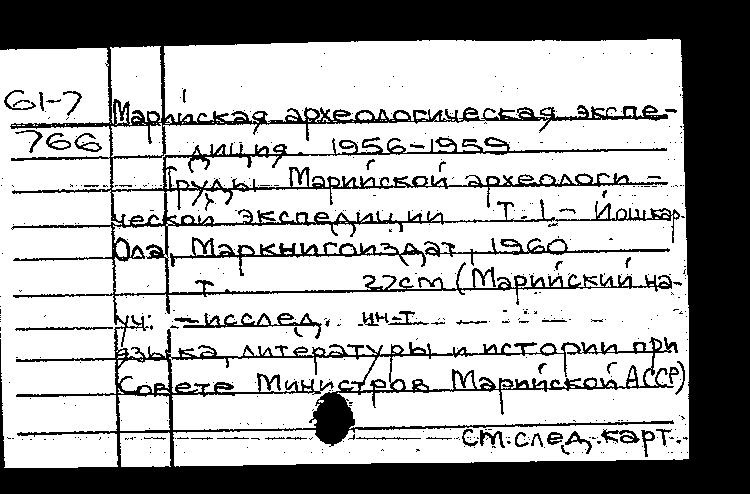 61-7
766
Марийская археологическая экспе-
диция. 1956-1959
Труды Марийской археологи-
ческой экспедиции Т. 1.- Йошкар
Ола, Маркнигоиздат, 1960
т. 27cm (Марийский на-
уч. -исслед. ин-т
языка, литературы и истории при
Совете Министров Марийской АССР)
см. след. карт.